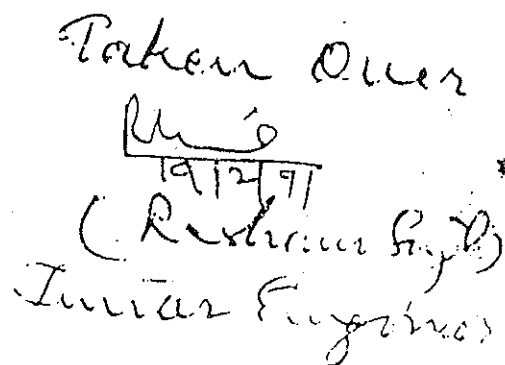 Taken Over
(Resham Singh)
Junior Engineer